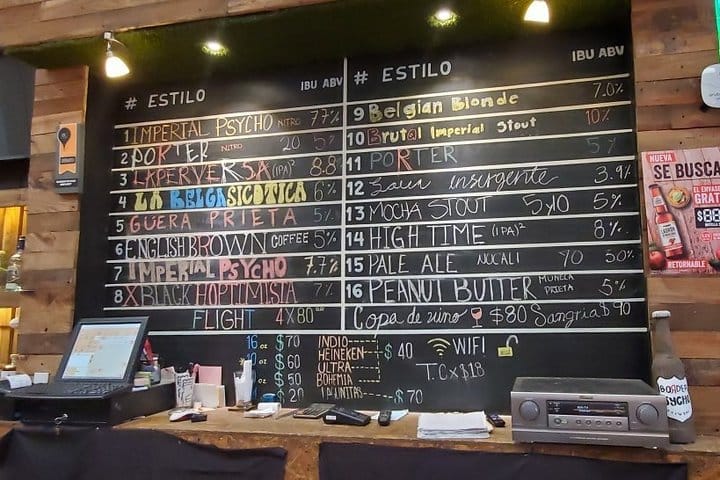 # ESTILO IBU ABV
1 IMPERIAL PSYCHO NITRO 7.7%
2 PORKTER NITRO 20 5%
3 LAPERVERSA (IPA)² 8.8%
4 LA BELGASICOTICA 6%
5 GUERA PRIETA 5%
6 ENGLISH BROWN COFFEE 5%
7 IMPERIAL PSYCHO 7.7%
8 XBLACK HOPTIMISTA 7%
FLIGHT 4X80
# ESTILO IBU ABV
9 Belgian Blonde 7.0%
10 Brutal Imperial Stout 10%
11 PORTER 5%
12 insurgente 3.9%
13 MOCHA STOUT 5%
14 HIGH TIME (IPA)² 8%
15 PALE ALE NUCALI
16 PEANUT BUTTER MUÑECA PRIETA 5%
Copa de vino $80 Sangria $90
16 oz $70
$60
$50
$20
INDIO
HEINEKEN $40
ULTRA
BOHEMIA
LAGUNITAS $70
WIFI
T.C x $18
NUEVA
SE BUSCA
EL ENVASE
GRATIS
RETORNABLE
BORDER
PSYCHO